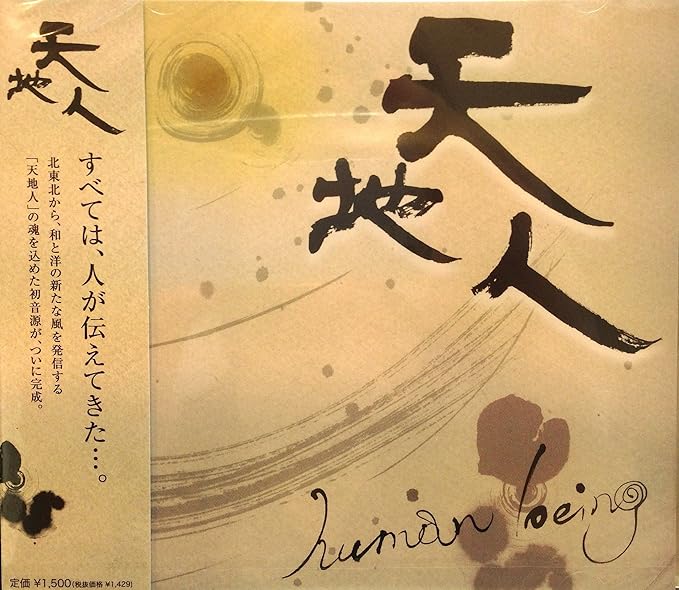 天地人
すべては、人が伝えてきた…。
北東北から、和と洋の新たな風を発信する
「天地人」の魂を込めた初音源が、ついに完成。
定価 ¥1,500(税抜価格 ¥1,429)
天地人
human being